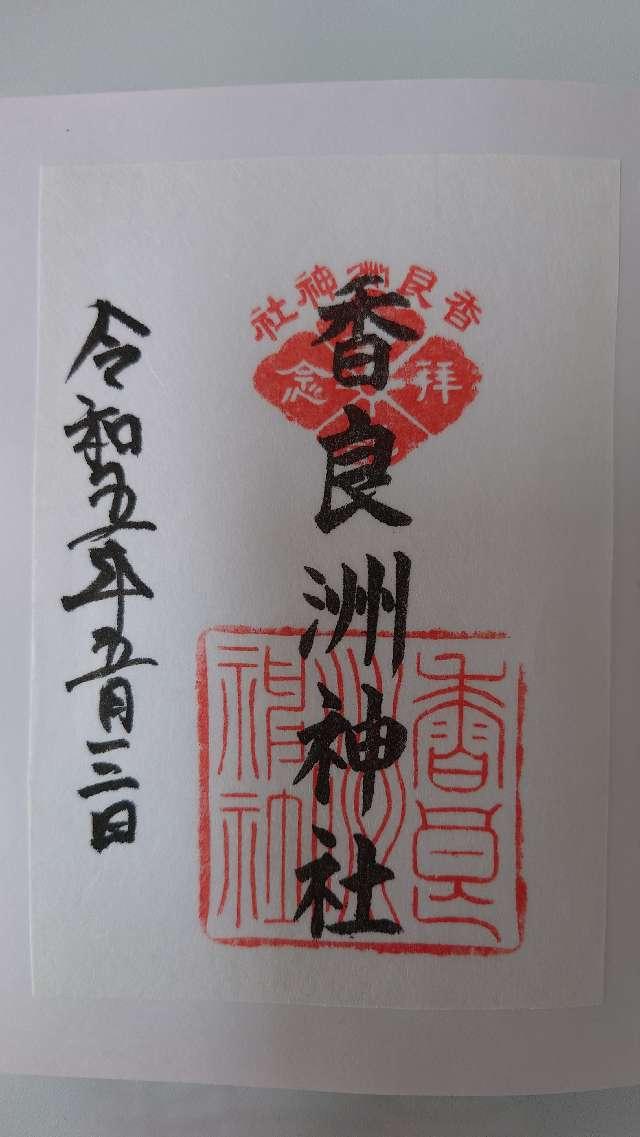 香良洲神社
拝念
香良洲神社
香良洲神社
令和五年五月三日